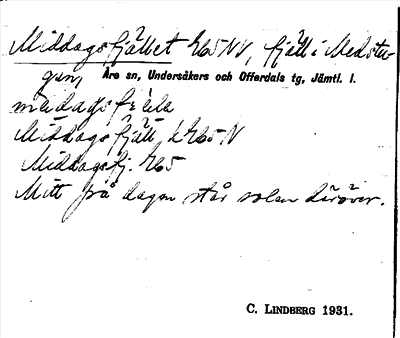 Middagsfjället 265 NV, fjäll i Medstu-
gan, Åre sn, Undersåkers och Offerdals tg, Jämtl. l.
Middagsfjäll, k 265 N
Middagsfj. 265
Mitt på dagen står solen däröver.
C. LINDBERG 1931.